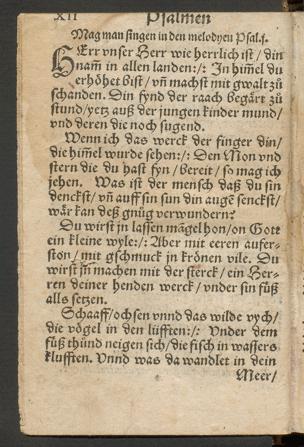 XII Psalmen
Mag man singen in den melodyen Psal.5.
HErr vnser Herr wie herrlich ist / din
nam̃ in allen landen:/: In him̃el du
erhöhet bist / vñ machst mit gwalt zů
schanden. Din fynd der raach begärt zů
stund / yetz auß der jungen kinder mund /
vnd deren die noch sugend.
Wenn ich das werck der finger din /
die him̃el wurde sehen:/: Den Mon vnd
stern die du hast fyn / bereit / so mag ich
jehen. Was ist der mensch daß du sin
denckst / vñ auff sin sun din aug̃ senckst /
wär kan deß gnůg verwundern?
Du wirst jn lassen mãgel hon / on Gott
ein kleine wyle:/: Aber mit eeren aufer-
ston / mit gschmuck in krönen vile. Du
wirst jñ machen mit der sterck / ein Her-
ren deiner henden werck / vnder sin fůß
alls setzen.
Schaaff / ochsen vnnd das wilde vych /
die vögel in den lüfften:/: Vnder dem
fůß thünd neigen sich / die fisch in wassers
klufften. Vnnd was da wandlet in dein
Meer /